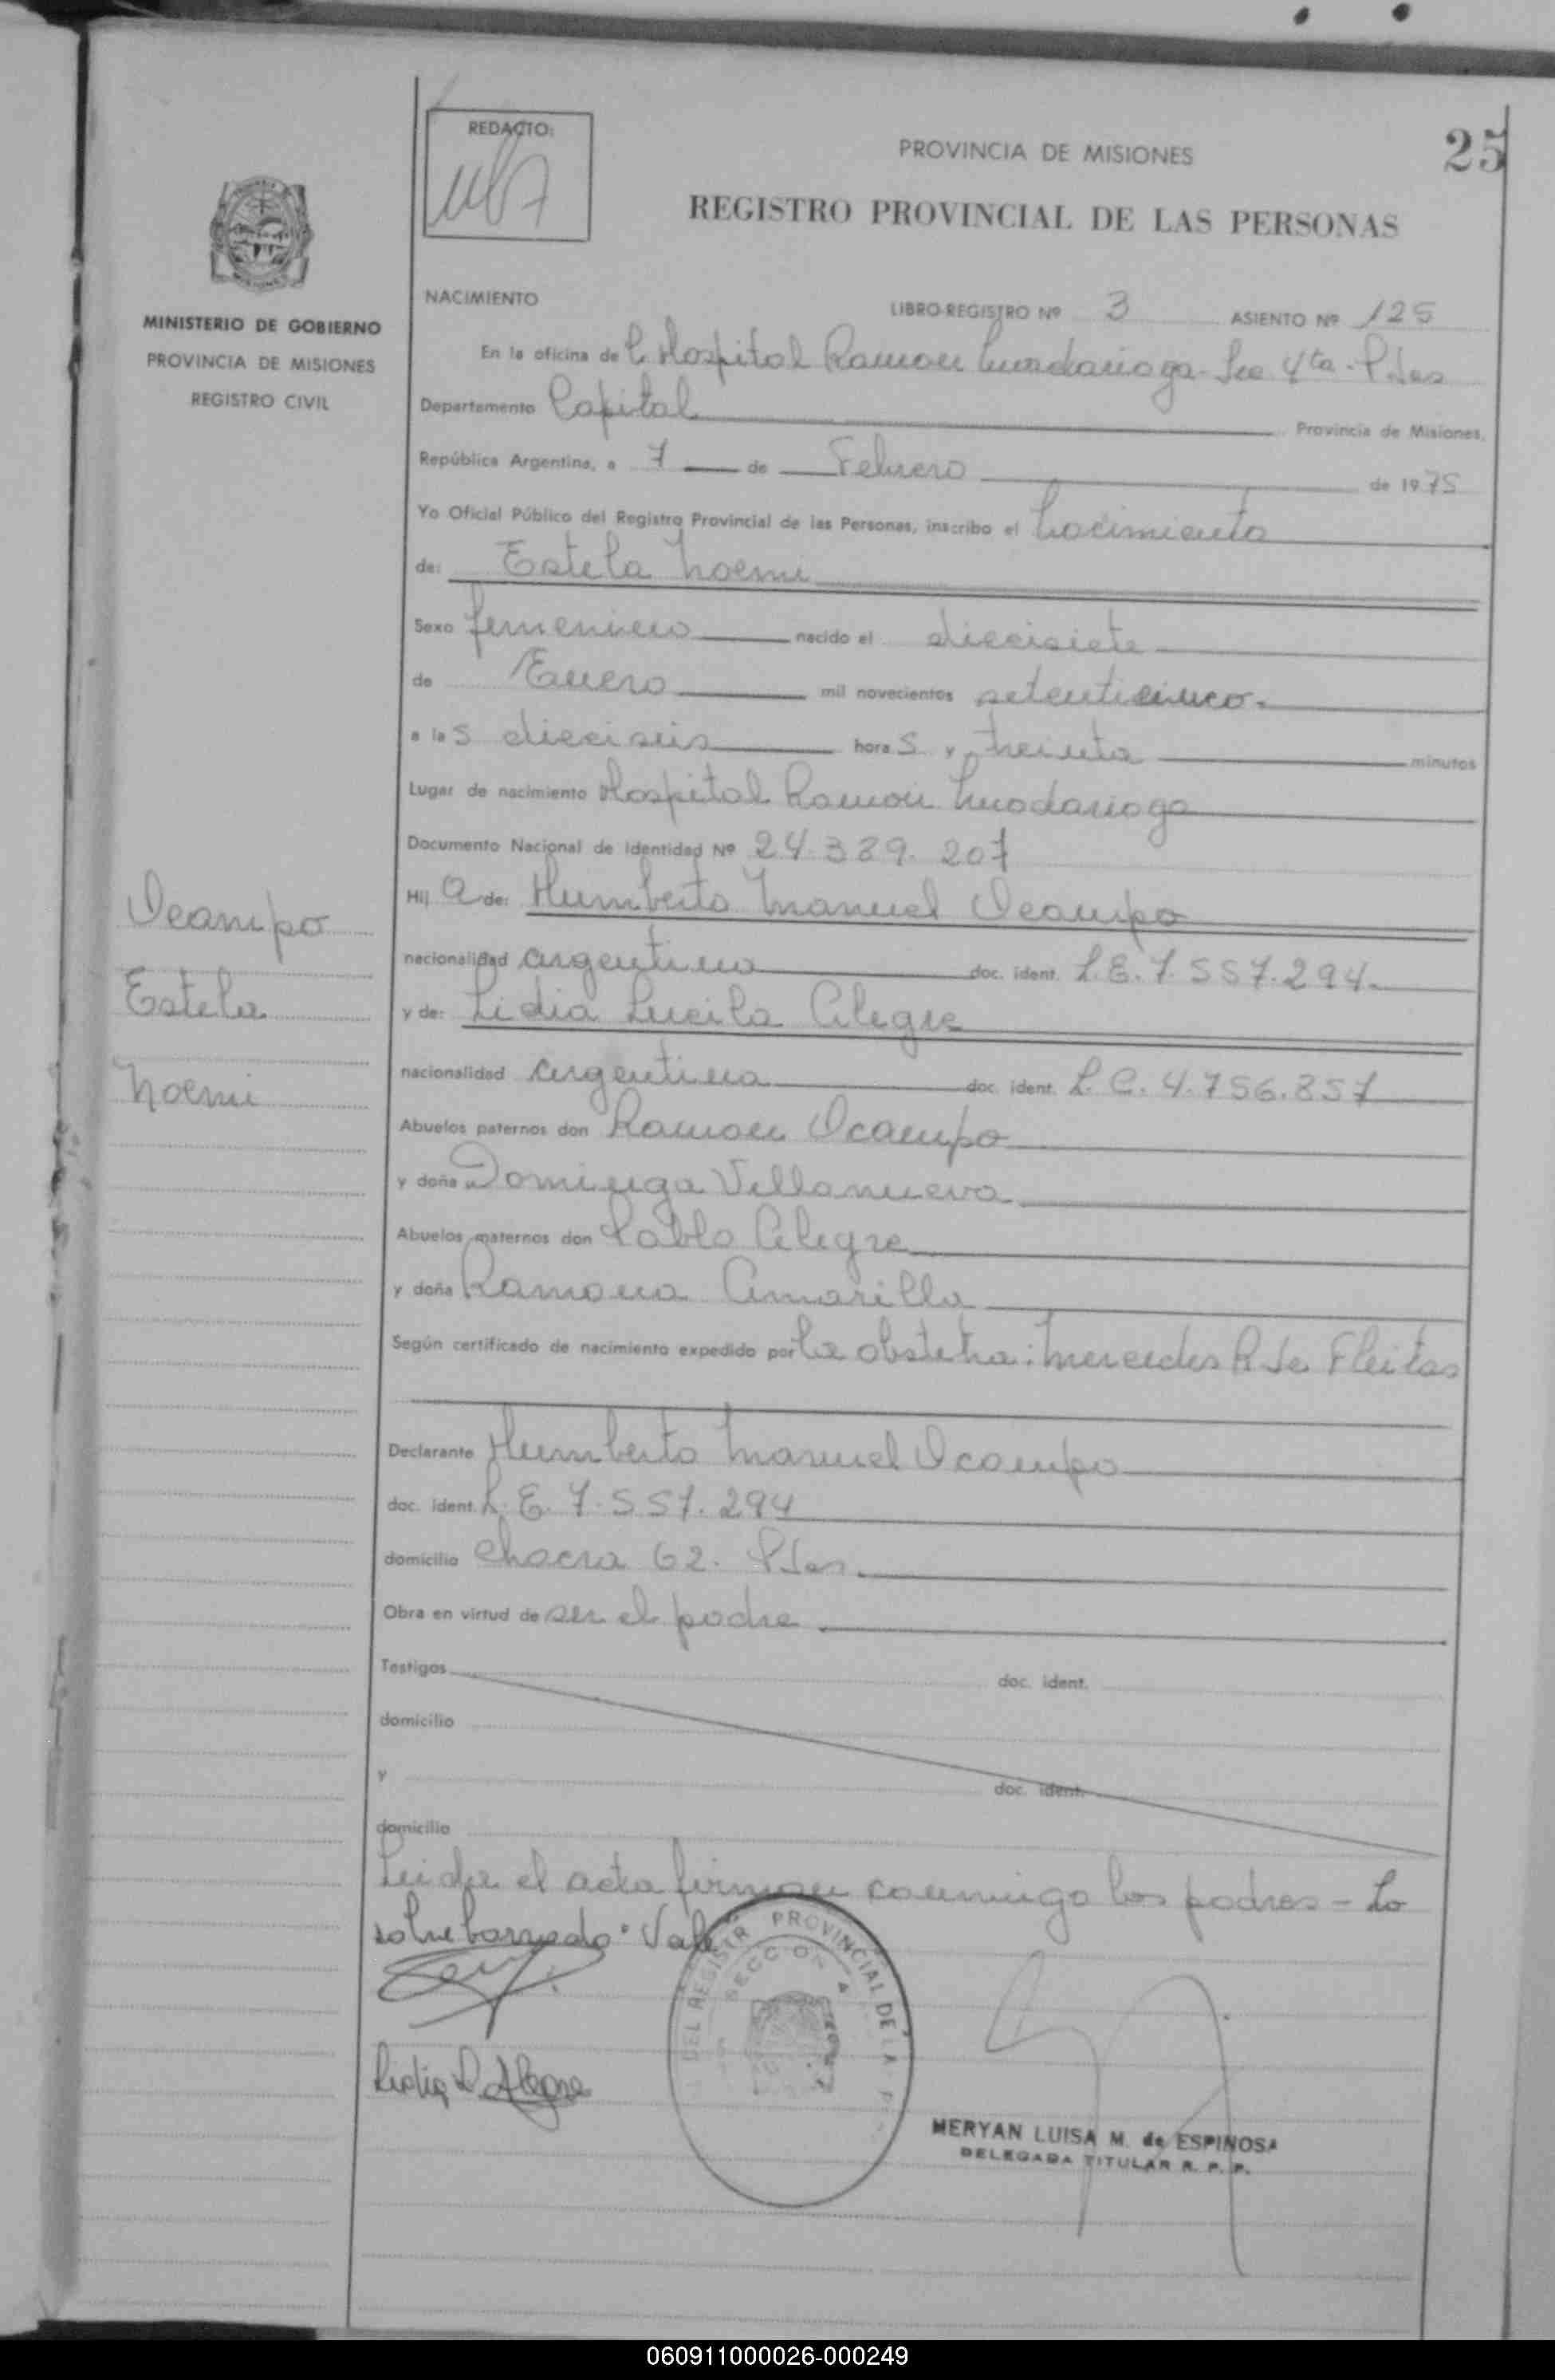 REDACTO:
PROVINCIA DE MISIONES
25
REGISTRO PROVINCIAL DE LAS PERSONAS
MINISTERIO DE GOBIERNO
PROVINCIA DE MISIONES
REGISTRO CIVIL
NACIMIENTO LIBRO-REGISTRO Nº 3 ASIENTO Nº 125
En la oficina de Hospital Ramon Madariaga - Sec 4ta - Pdas
Departamento Capital Provincia de Misiones,
República Argentina, a 7 de Febrero de 1975
Yo Oficial Público del Registro Provincial de las Personas, inscribo el Nacimiento
de: Estela Noemi
Sexo femenino nacido el diecisiete
de Enero mil novecientos setenticinco.
a las dieciseis horas y treinta minutos
Lugar de nacimiento Hospital Ramon Madariaga
Documento Nacional de Identidad Nº 24.389.207
Hija de: Humberto Manuel Ocampo
nacionalidad argentino doc. ident. L.E. 7.557.294.
y de: Lidia Lucila Alegre
nacionalidad argentina doc. ident. L.C. 4.756.857
Abuelos paternos don Ramon Ocampo
y doña Dominga Villanueva
Abuelos maternos don Pablo Alegre
y doña Ramona Amarilla
Según certificado de nacimiento expedido por la obstetra: Mercedes R de Fleitas
Declarante Humberto Manuel Ocampo
doc. ident. L.E. 7.557.294
domicilio chacra 62. Pdas.
Obra en virtud de ser el padre
Testigos doc. ident.
domicilio
y doc. ident.
domicilio
Leida el acta firman conmigo los padres - Lo
sobreborrado: Vale
Lidia L. Alegre
DEL REGISTR PROVINCIAL DE LA P
SECCION 4
MERYAN LUISA M. de ESPINOSA
DELEGADA TITULAR R. P. P.
Ocampo
Estela
Noemi
060911000026-000249